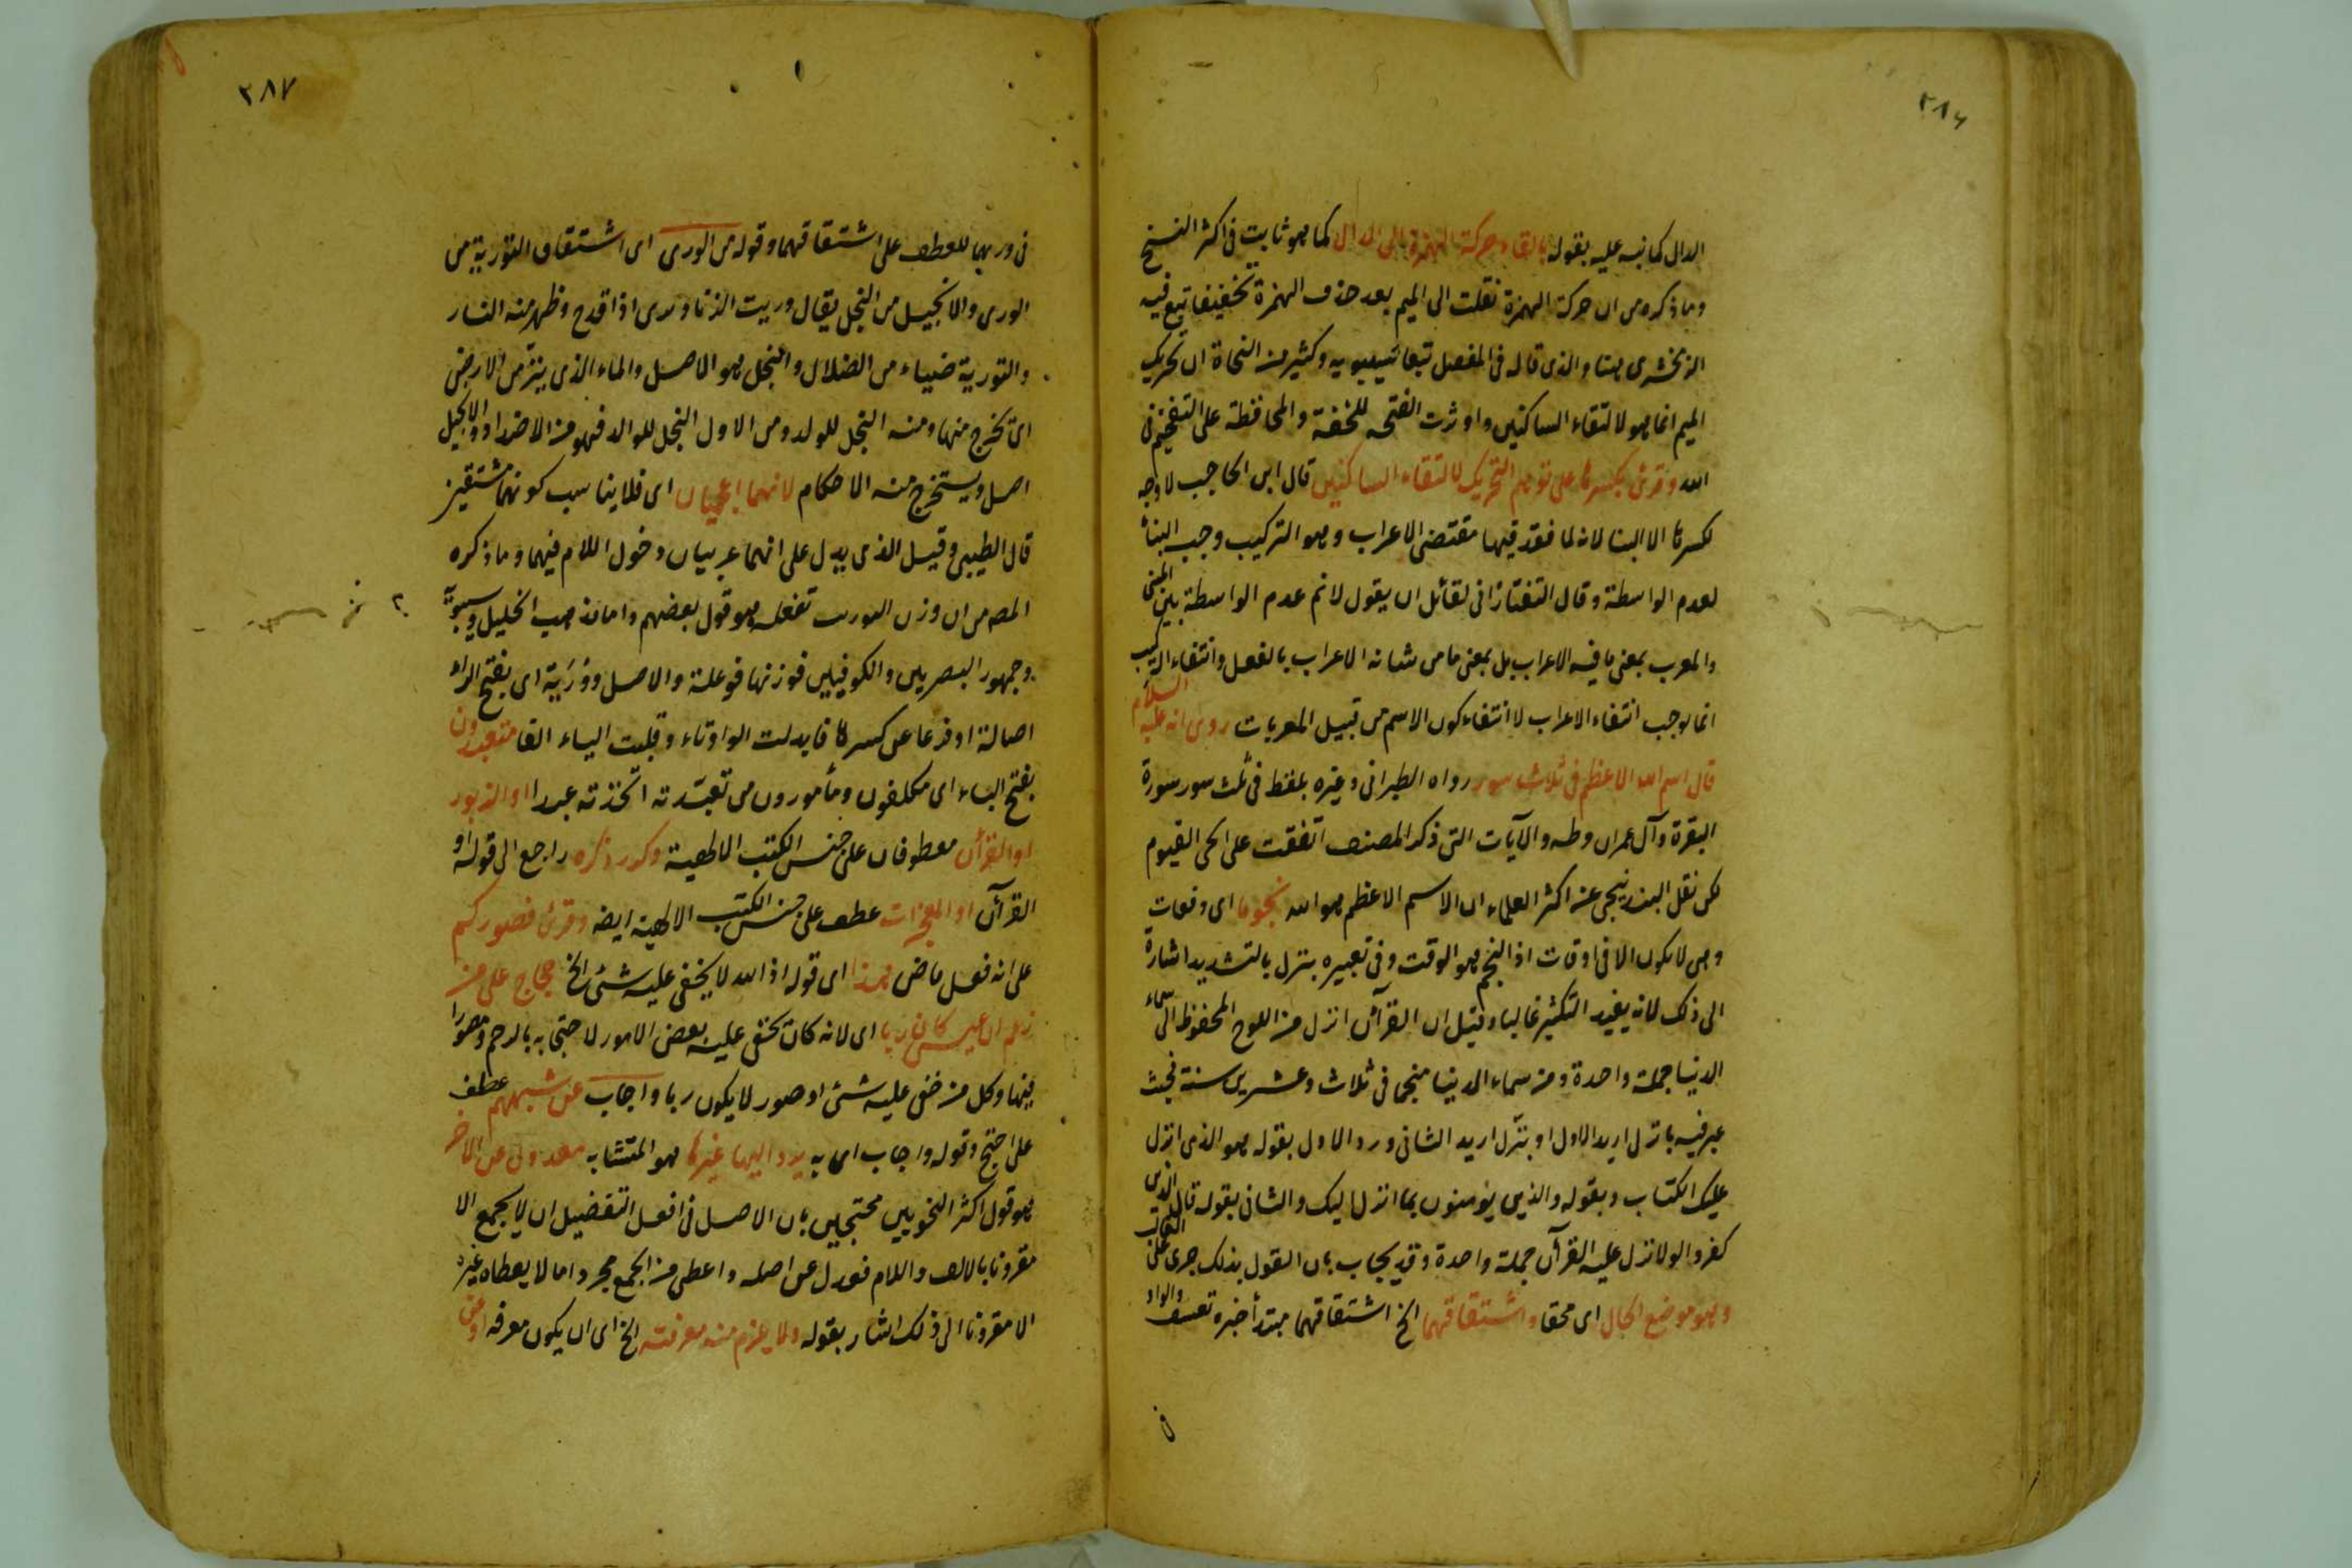 ٢٨٦
الدال كما نبه عليه بقوله بالقاء حركة الهمزة الى الدال كما هو ثابت فى اكثر النسخ
وما ذكره من ان حركة الهمزة نقلت الى الميم بعد حذف الهمزة تخفيفا تبع فيه
الزمخشرى هنا والذى قاله فى المفصل تبعا لسيبويه وكثير من النحاة ان تحريك
الميم انما هو لالتقاء الساكنين واوثرت الفتحة للخفة والمحافظة على التفخيم فى
الله وقرئ بكسرها على توهم التحريك لالتقاء الساكنين قال ابن الحاجب لا وجه
لكسرها الا البنا لانه لما فقد فيها مقتضى الاعراب وهو التركيب وجب البناء
لعدم الواسطة وقال التفتازانى لقائل ان يقول لانم عدم الواسطة بين المبنى
والمعرب بمعنى ما فيه الاعراب بل بمعنى ما من شانه الاعراب بالفعل وانتفاء التركيب
انما يوجب انتفاء الاعراب لا انتفاء كون الاسم من قبيل المعربات روى انه عليه السلام
قال اسم الله الاعظم فى ثلاث سور رواه الطبرانى وغيره بلفظ فى ثلث سور سورة
البقرة وآل عمران وطه والآيات التى ذكر المصنف اتفقت على الحى القيوم
لكن نقل البندنيجى عن اكثر العلماء ان الاسم الاعظم هو الله نجوما اى دفعات
وهى لا يكون الا فى اوقات اذ النجم هو الوقت وفى تعبيره بنزل بالتشديد اشارة
الى ذلك لانه يفيد التكثير غالبا وقيل ان القرآن انزل من اللوح المحفوظ الى سماء
الدنيا جملة واحدة ومن سماء الدنيا منجما فى ثلاث وعشرين سنة فحيث
عبر فيه بانزل اريد الاول او بنزّل اريد الثانى ورد الاول بقوله هو الذى انزل
عليك الكتاب وبقوله والذين يؤمنون بما انزل اليك والثانى بقوله قال الذين
كفروا لولا نزل عليه القرآن جملة واحدة وقد يجاب بان القول بذلك جرى على الغالب
وهو موضع الحال اى محقا واشتقاقهما الخ اشتقاقهما مبتدأ خبره تعسف والواو
فى
٢٨٧
فى وربما للعطف على اشتقاقهما وقوله من الورى اى اشتقاق التورية من
الورى والانجيل من النجل يقال وريت الزناد ورى اذا قدح وظهر منه النار
والتورية ضياء من الضلال والنجل هو الاصل والماء الذى ينزّ من الارض
اى تخرج منها ومنه النجل للولد ومن الاول النجل للوالد فهو من الاضداد والانجيل
اصل ويستخرج منه الاحكام لانهما اعجميان اى فلا يناسب كونهما مشتقين
قال الطيبى وقيل الذى يدل على انهما عربيان دخول اللام فيهما وما ذكره
المصـ من ان وزن التوريت تفعلة هو قول بعضهم واما مذهب الخليل وسيبويه
وجمهور البصريين والكوفيين فوزنها فوعلة والاصل ووْرَيَة اى بفتح الراء
اصالة او فرعا على كسرها فابدلت الواو تاء وقلبت الياء الفا متعبدون
بفتح الباء اى مكلفون ومأمورون من تعبّدته اتخذته عبدا او الزبور
او القرآن معطوفان على جنس الكتب الالهية وكرر ذكره راجع الى قوله او
القرآن او المعجزات عطف على جنس الكتب الالهية ايضه وقرئ فصوركم
على انه فعل ماض هذا اى قوله اذ الله لا يخفى عليه شئ الخ حجاج على من
زعم ان عيسى كان ربا اى لانه كان تخفى عليه بعض الامور لاحتجابه بالرحم ومصورا
فيها وكل من خفى عليه شئ او صور لا يكون ربا واجاب عن شبههم عطف
على احتج وقوله واجاب اى به يرد اليها غيرها هو المتشابه معدول عن الآخر
هو قول اكثر النحويين محتجين بان الاصل فى افعل التفضيل ان لا يجمع الا
مقرونا بالالف واللام فعدل عن اصله واعطى من الجمع مجردا ما لا يعطاه غيره
الا مقرونا الى ذلك اشار بقوله ولا يلزم منه معرفته الخ اى ان يكون معرفه او عن